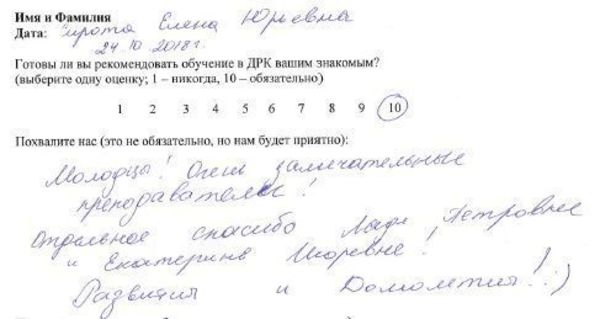 Имя и Фамилия Сирота Елена Юрьевна
Дата: 24.10.2018г.
Готовы ли вы рекомендовать обучение в ДРК вашим знакомым?
(выберите одну оценку; 1 – никогда, 10 – обязательно)
1 2 3 4 5 6 7 8 9 10
Похвалите нас (это не обязательно, но нам будет приятно):
Молодцы! Очень замечательные
преподаватели!
Отдельное спасибо Ладе Петровне
и Екатерине Игоревне!
Развития и Долголетия! :)